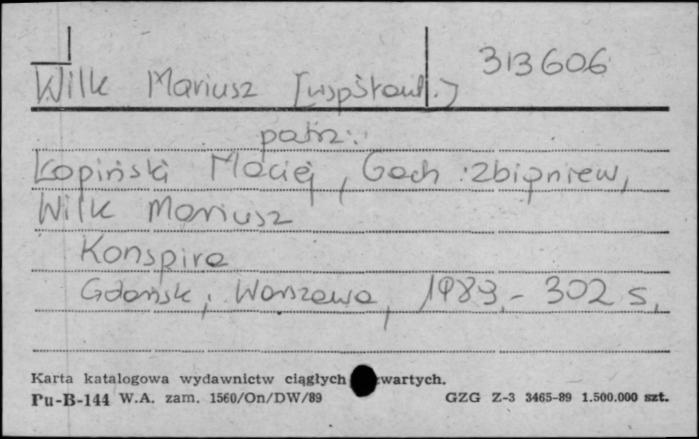 313606
Wilk Mariusz [współaut.]
patrz:
Łopiński Maciej, Gach Zbigniew,
Wilk Mariusz
Konspira
Gdańsk, Warszawa, 1989.- 302 s.
Karta katalogowa wydawnictw ciągłych wartych.
Pu-B-144 W.A. zam. 1560/On/DW/89 GZG Z-3 3465-89 1.500.000 szt.